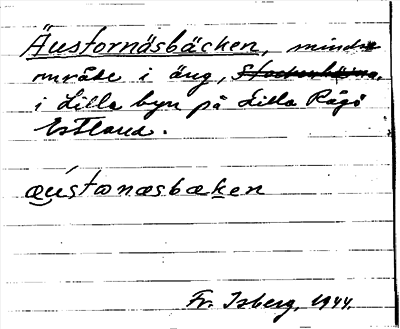 Äustornäsbäcken, mindre
område i äng,
i Lilla byn på Lilla Rågö
Estland.
æústænæsbæken
Fr. Isberg, 1944.